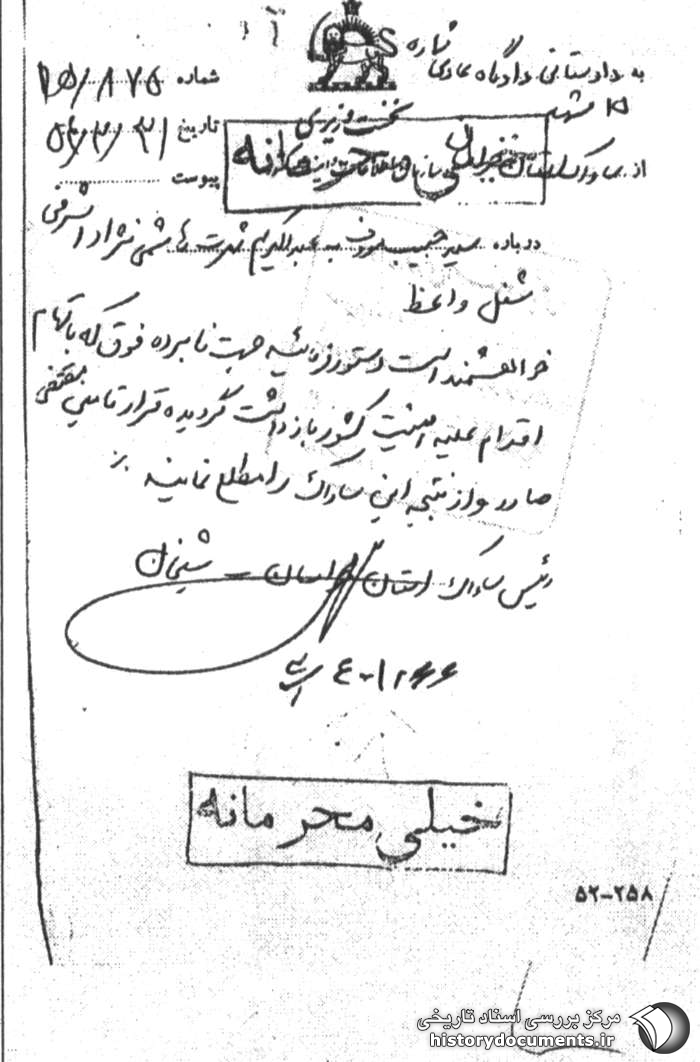 به دادستانی دادگاه عادی شماره
۱۵ مشهد
شماره ۱۵/۸۷۵
نخست وزیری
تاریخ ۵۴/۳/۳۱
از ساواک استان
سازمان اطلاعات و امنیت کشور
خیلی محرمانه
پیوست
درباره سید حبیب معروف به عبدالکریم شهرت هاشمی نژاد اشرفی
شغل واعظ
خواهشمند است دستور فرمائید جهت نامبرده فوق که باتهام
اقدام علیه امنیت کشور بازداشت گردیده قرار تامین مقتضی
صادر و از نتیجه این ساواک را مطلع نمایند
رئیس ساواک استان خراسان – شیخان
خیلی محرمانه
۵۲-۲۵۸
مرکز بررسی اسناد تاریخی
historydocuments.ir